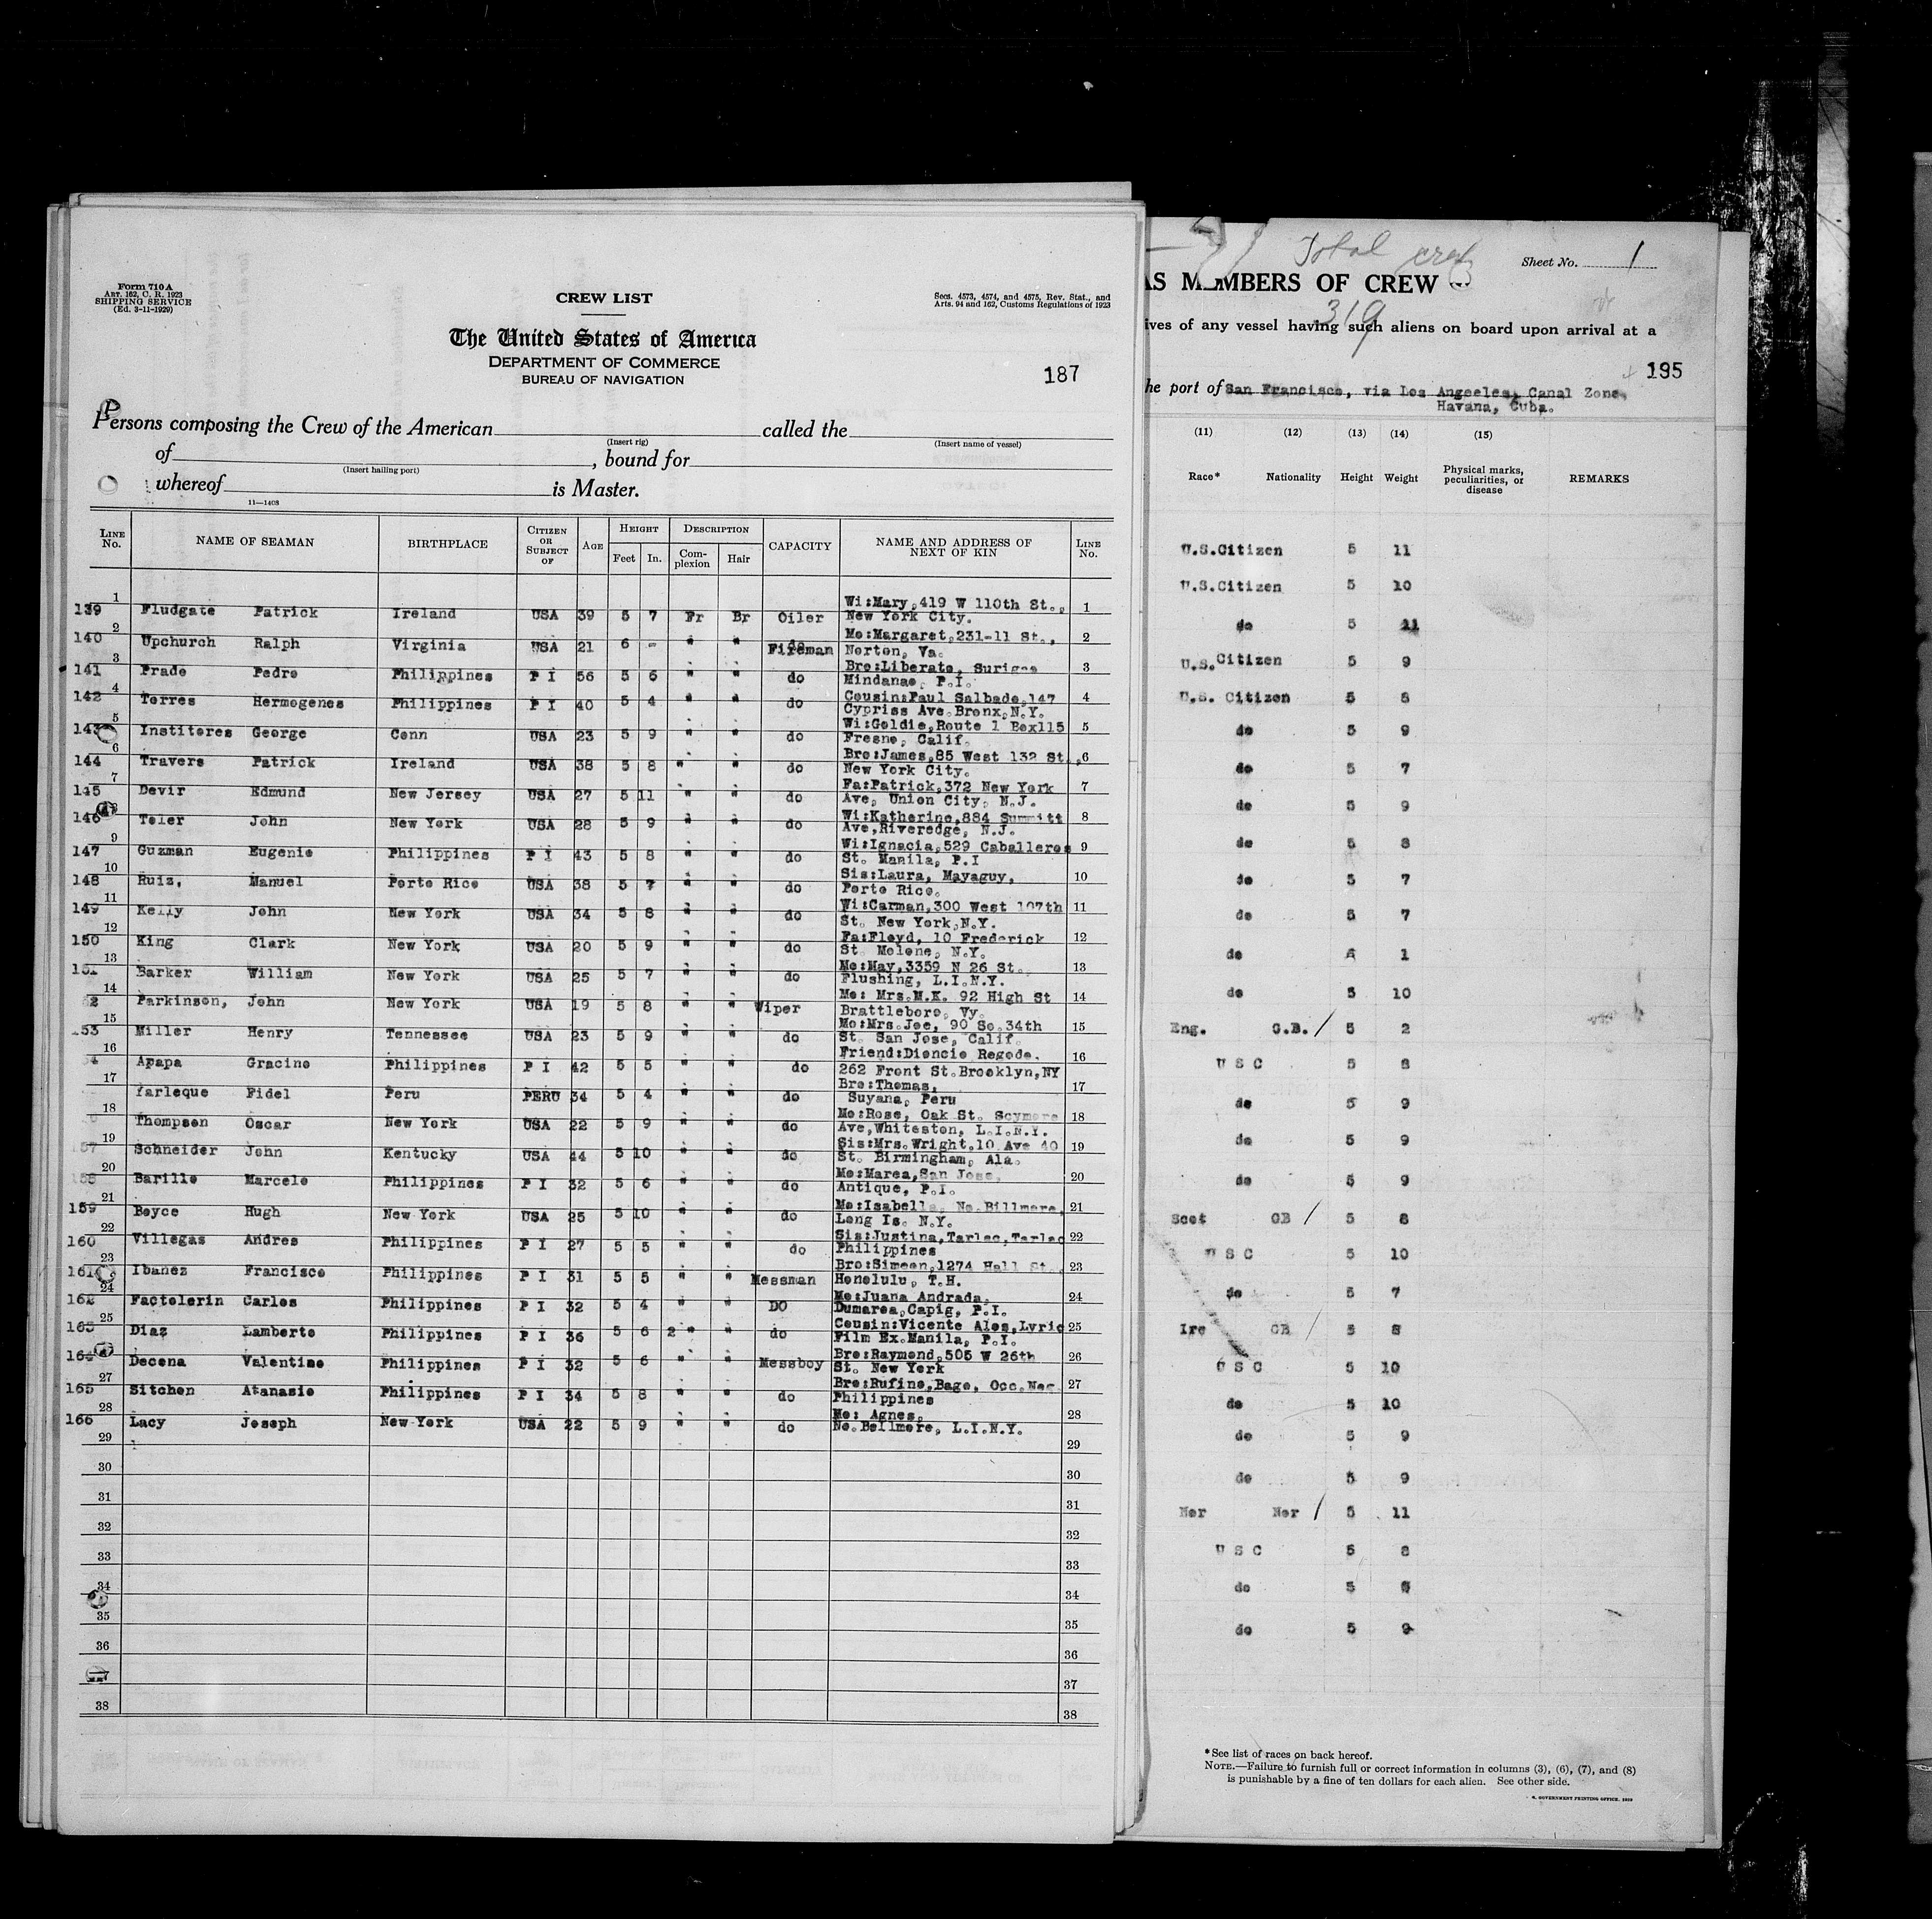 Form 710 A
ART. 162, C. R. 1923
SHIPPING SERVICE
(Ed. 3-11-1929)
CREW LIST
Secs. 4573, 4574, and 4575, Rev. Stat., and
Arts. 94 and 162, Customs Regulations of 1923
The United States of America
DEPARTMENT OF COMMERCE
BUREAU OF NAVIGATION
187
Persons composing the Crew of the American called the
(Insert rig) (Insert name of vessel)
of , bound for
(Insert hailing port)
whereof is Master.
11—1408
LINE No. NAME OF SEAMAN BIRTHPLACE CITIZEN OR SUBJECT OF AGE HEIGHT Feet In. DESCRIPTION Complexion Hair CAPACITY NAME AND ADDRESS OF NEXT OF KIN LINE No.
1 Wi:Mary,419 W 110th St., 1
139 Fludgate Patrick Ireland USA 39 5 7 Fr Br Oiler New York City.
2 Mo:Margaret,231-11 St., 2
140 Upchurch Ralph Virginia USA 21 6 - " " Fireman Norton, Va.
3 Bro:Liberato, 3
141 Prado Pedro Philippines P I 56 5 6 " " do Mindanao, P.I.
4 Cousin:Paul Salbado,147 4
142 Torres Hermogenes Philippines P I 40 5 4 " " do Cypriss Ave.Bronx,N.Y.
5 Wi:Goldie,Route 1 Box115 5
143 Institores George Conn USA 23 5 9 " " do Fresno, Calif.
6 Bro:James,85 West 132 St., 6
144 Travers Patrick Ireland USA 38 5 8 " " do New York City.
7 Fa:Patrick,372 New York 7
145 Devir Edmund New Jersey USA 27 5 11 " " do Ave, Union City, N.J.
8 Wi:Katherine,884 Summitt 8
146 Toler John New York USA 28 5 9 " " do Ave,Riveredge, N.J.
9 Wi:Ignacia,529 Caballeros 9
147 Guzman Eugenio Philippines P I 43 5 8 " " do St. Manila, P.I
10 Sis:Laura, Mayaguy, 10
148 Ruiz, Manuel Porto Rico USA 38 5 7 " " do Porto Rico.
11 Wi:Carman,300 West 107th 11
149 Kelly John New York USA 34 5 8 " " do St. New York,N.Y.
12 Fa:Floyd, 10 Frederick 12
150 King Clark New York USA 20 5 9 " " do St Molone, N.Y.
13 Mo:May,3359 N 26 St. 13
151 Barker William New York USA 25 5 7 " " do Flushing, L.I.N.Y.
14 Mo: Mrs.M.K. 92 High St 14
52 Parkinson, John New York USA 19 5 8 " " Wiper Brattleboro, Vy.
15 Mo:Mrs.Joe, 90 So.34th 15
153 Miller Henry Tennessee USA 23 5 9 " " do St. San Jose, Calif.
16 Friend:Dioncio Regodo. 16
54 Apapa Gracino Philippines P I 42 5 5 " " do 262 Front St.Brooklyn,NY
17 Bro:Thomas, 17
Yarleque Fidel Peru PERU 34 5 4 " " do Suyana, Peru
18 Mo:Rose, Oak St. Scymore 18
Thompson Oscar New York USA 22 5 9 " " do Ave,Whiteston, L.I.N.Y.
19 Sis:Mrs.Wright,10 Ave 40 19
157 Schneider John Kentucky USA 44 5 10 " " do St. Birmingham, Ala.
20 Mo:Marea,San Jose, 20
158 Barillo Marcelo Philippines P I 32 5 6 " " do Antique, P.I.
21 Mo:Isabella, No.Billmore, 21
159 Boyce Hugh New York USA 25 5 10 " " do Long Is. N.Y.
22 Sis:Justina,Tarlac,Tarlac 22
160 Villegas Andres Philippines P I 27 5 5 " " do Philippines
23 Bro:Simeon,1274 Hall St., 23
161 Ibanez Francisco Philippines P I 31 5 5 " " Messman Honolulu, T.H.
24 Mo:Juana Andrada, 24
162 Factolerin Carlos Philippines P I 32 5 4 " " DO Dumarea,Capig, P.I.
25 Cousin:Vicente Alos,Lyric 25
163 Diaz Lamberto Philippines P I 36 5 6 2 " " do Film Ex.Manila, P.I.
26 Bro:Raymond,505 W 26th 26
164 Decena Valentino Philippines P I 32 5 6 " " Messboy St. New York
27 Bro:Rufino,Bago, Occ.Neg 27
165 Sitchon Atanasio Philippines P I 34 5 8 " " do Philippines
28 Mo: Agnes, 28
166 Lacy Joseph New York USA 22 5 9 " " do No.Bellmore, L.I.N.Y.
29 29
30 30
31 31
32 32
33 33
34 34
35 35
36 36
37 37
38 38
Total crew
Sheet No. 1
AS MEMBERS OF CREW
319
ives of any vessel having such aliens on board upon arrival at a
195
he port of San Francisco, via Los Angeeles, Canal Zone,
Havana, Cuba.
(11) (12) (13) (14) (15)
Race* Nationality Height Weight Physical marks, peculiarities, or disease REMARKS
U.S.Citizen 5 11
U.S.Citizen 5 10
do 5 11
U.S.Citizen 5 9
U.S. Citizen 5 8
do 5 9
do 5 7
do 5 9
do 5 8
do 5 7
do 5 7
do 6 1
do 5 10
Eng. G.B. / 5 2
U S C 5 8
do 5 9
do 5 9
do 5 9
Scot GB / 5 8
U S C 5 10
do 5 7
Ire GB / 5 8
U S C 5 10
do 5 10
do 5 9
do 5 9
Nor Nor / 5 11
U S C 5 8
do 5
do 5 9
*See list of races on back hereof.
NOTE.—Failure to furnish full or correct information in columns (3), (6), (7), and (8)
is punishable by a fine of ten dollars for each alien. See other side.
GOVERNMENT PRINTING OFFICE.